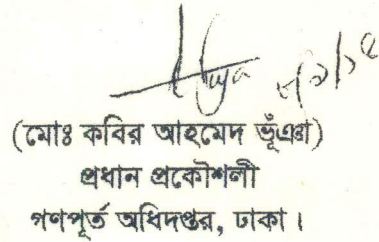 (মোঃ কবির আহমেদ ভূঁঞা)
প্রধান প্রকৌশলী
গণপূর্ত অধিদপ্তর, ঢাকা।